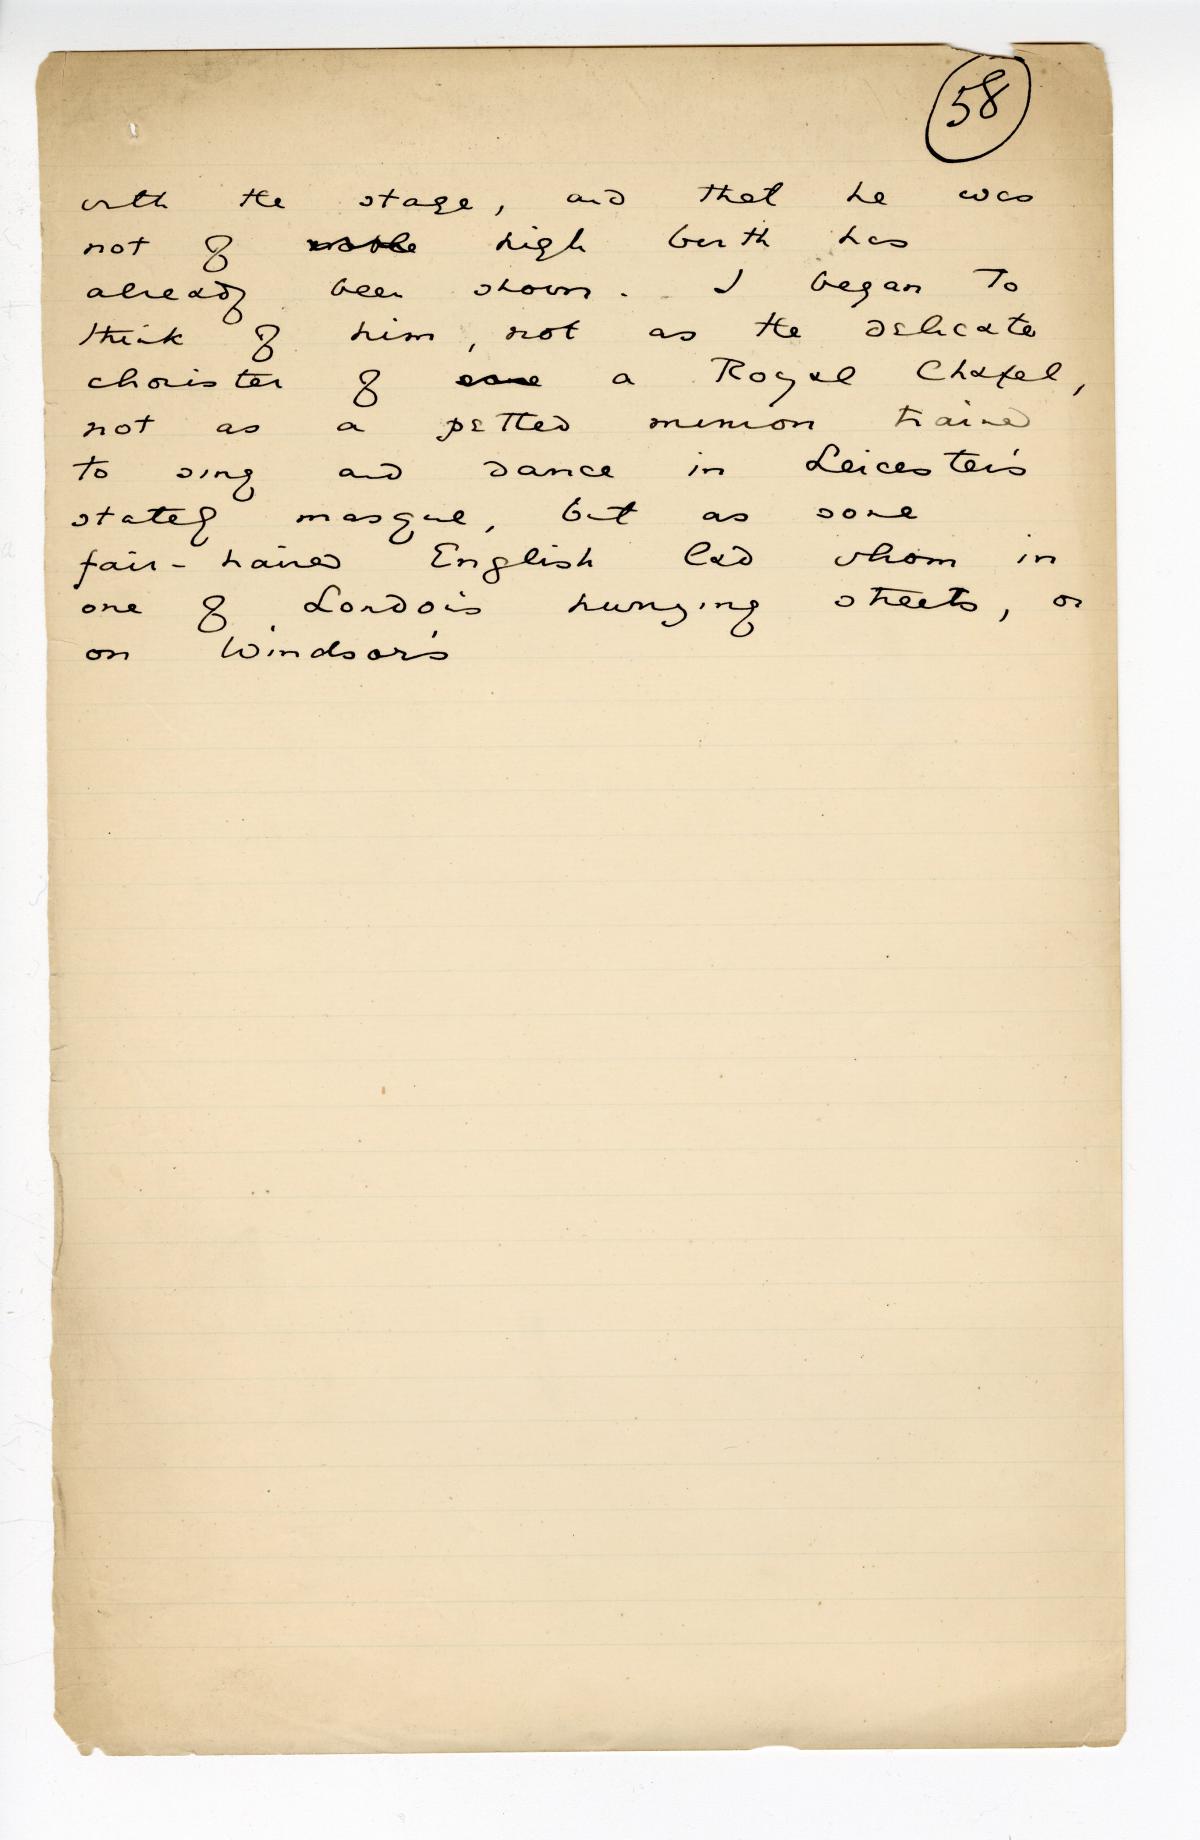 58
with the stage, and that he was
not of noble high birth has
already been shown. I began to
think of him, not as the delicate
chorister of some a Royal Chapel,
not as a petted minion trained
to sing and dance in Leicester's
stately masque, but as some
fair-haired English lad whom in
one of London's hurrying streets, or
on Windsor's